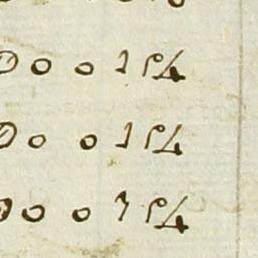 0 0 0 154
0 0 0 154
0 0 0 154